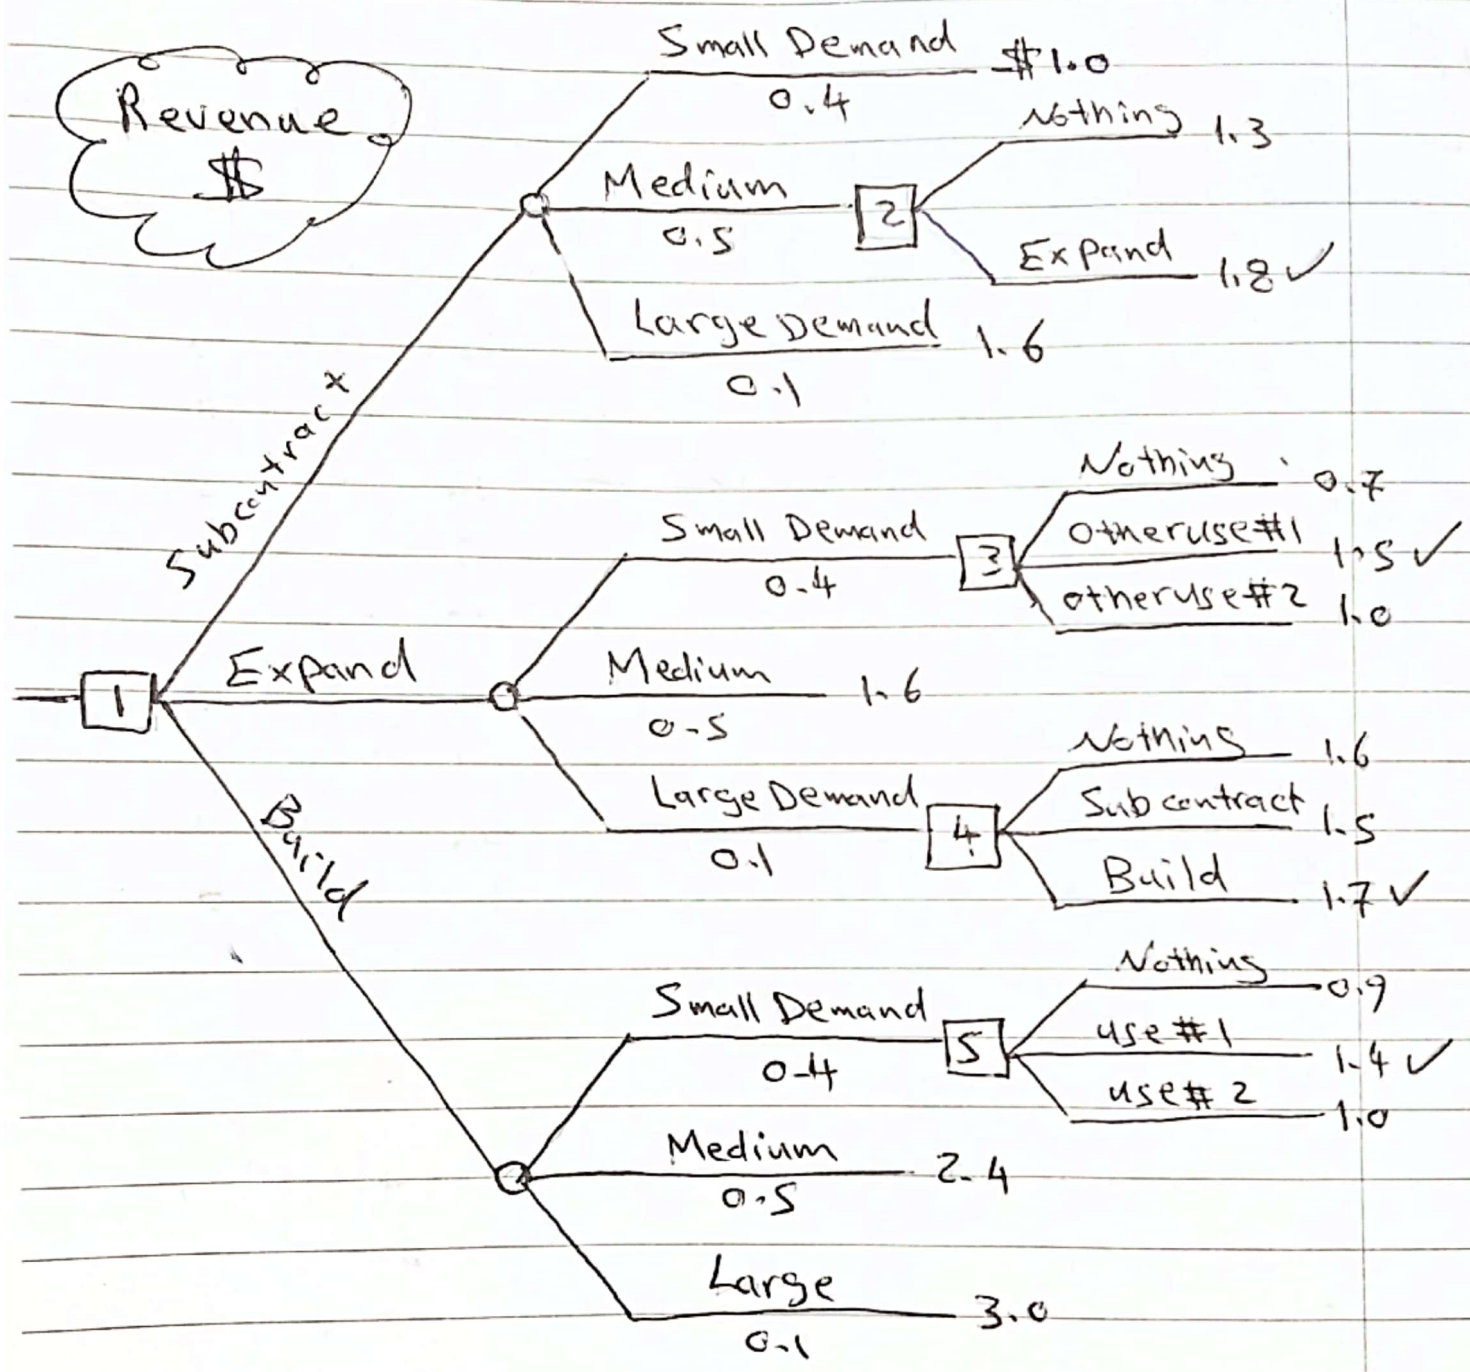 Revenue
$
Small Demand $1.0
0.4
Medium
0.5
2
Nothing 1.3
Expand 1.8 ✓
Large Demand 1.6
0.1
Subcontract
1
Expand
Small Demand
0.4
3
Nothing 0.7
otheruse#1 1.5 ✓
otheruse#2 1.0
Medium 1.6
0.5
Large Demand
0.1
4
Nothing 1.6
Subcontract 1.5
Build 1.7 ✓
Build
Small Demand
0.4
5
Nothing 0.9
use #1 1.4 ✓
use# 2 1.0
Medium 2.4
0.5
Large 3.0
0.1